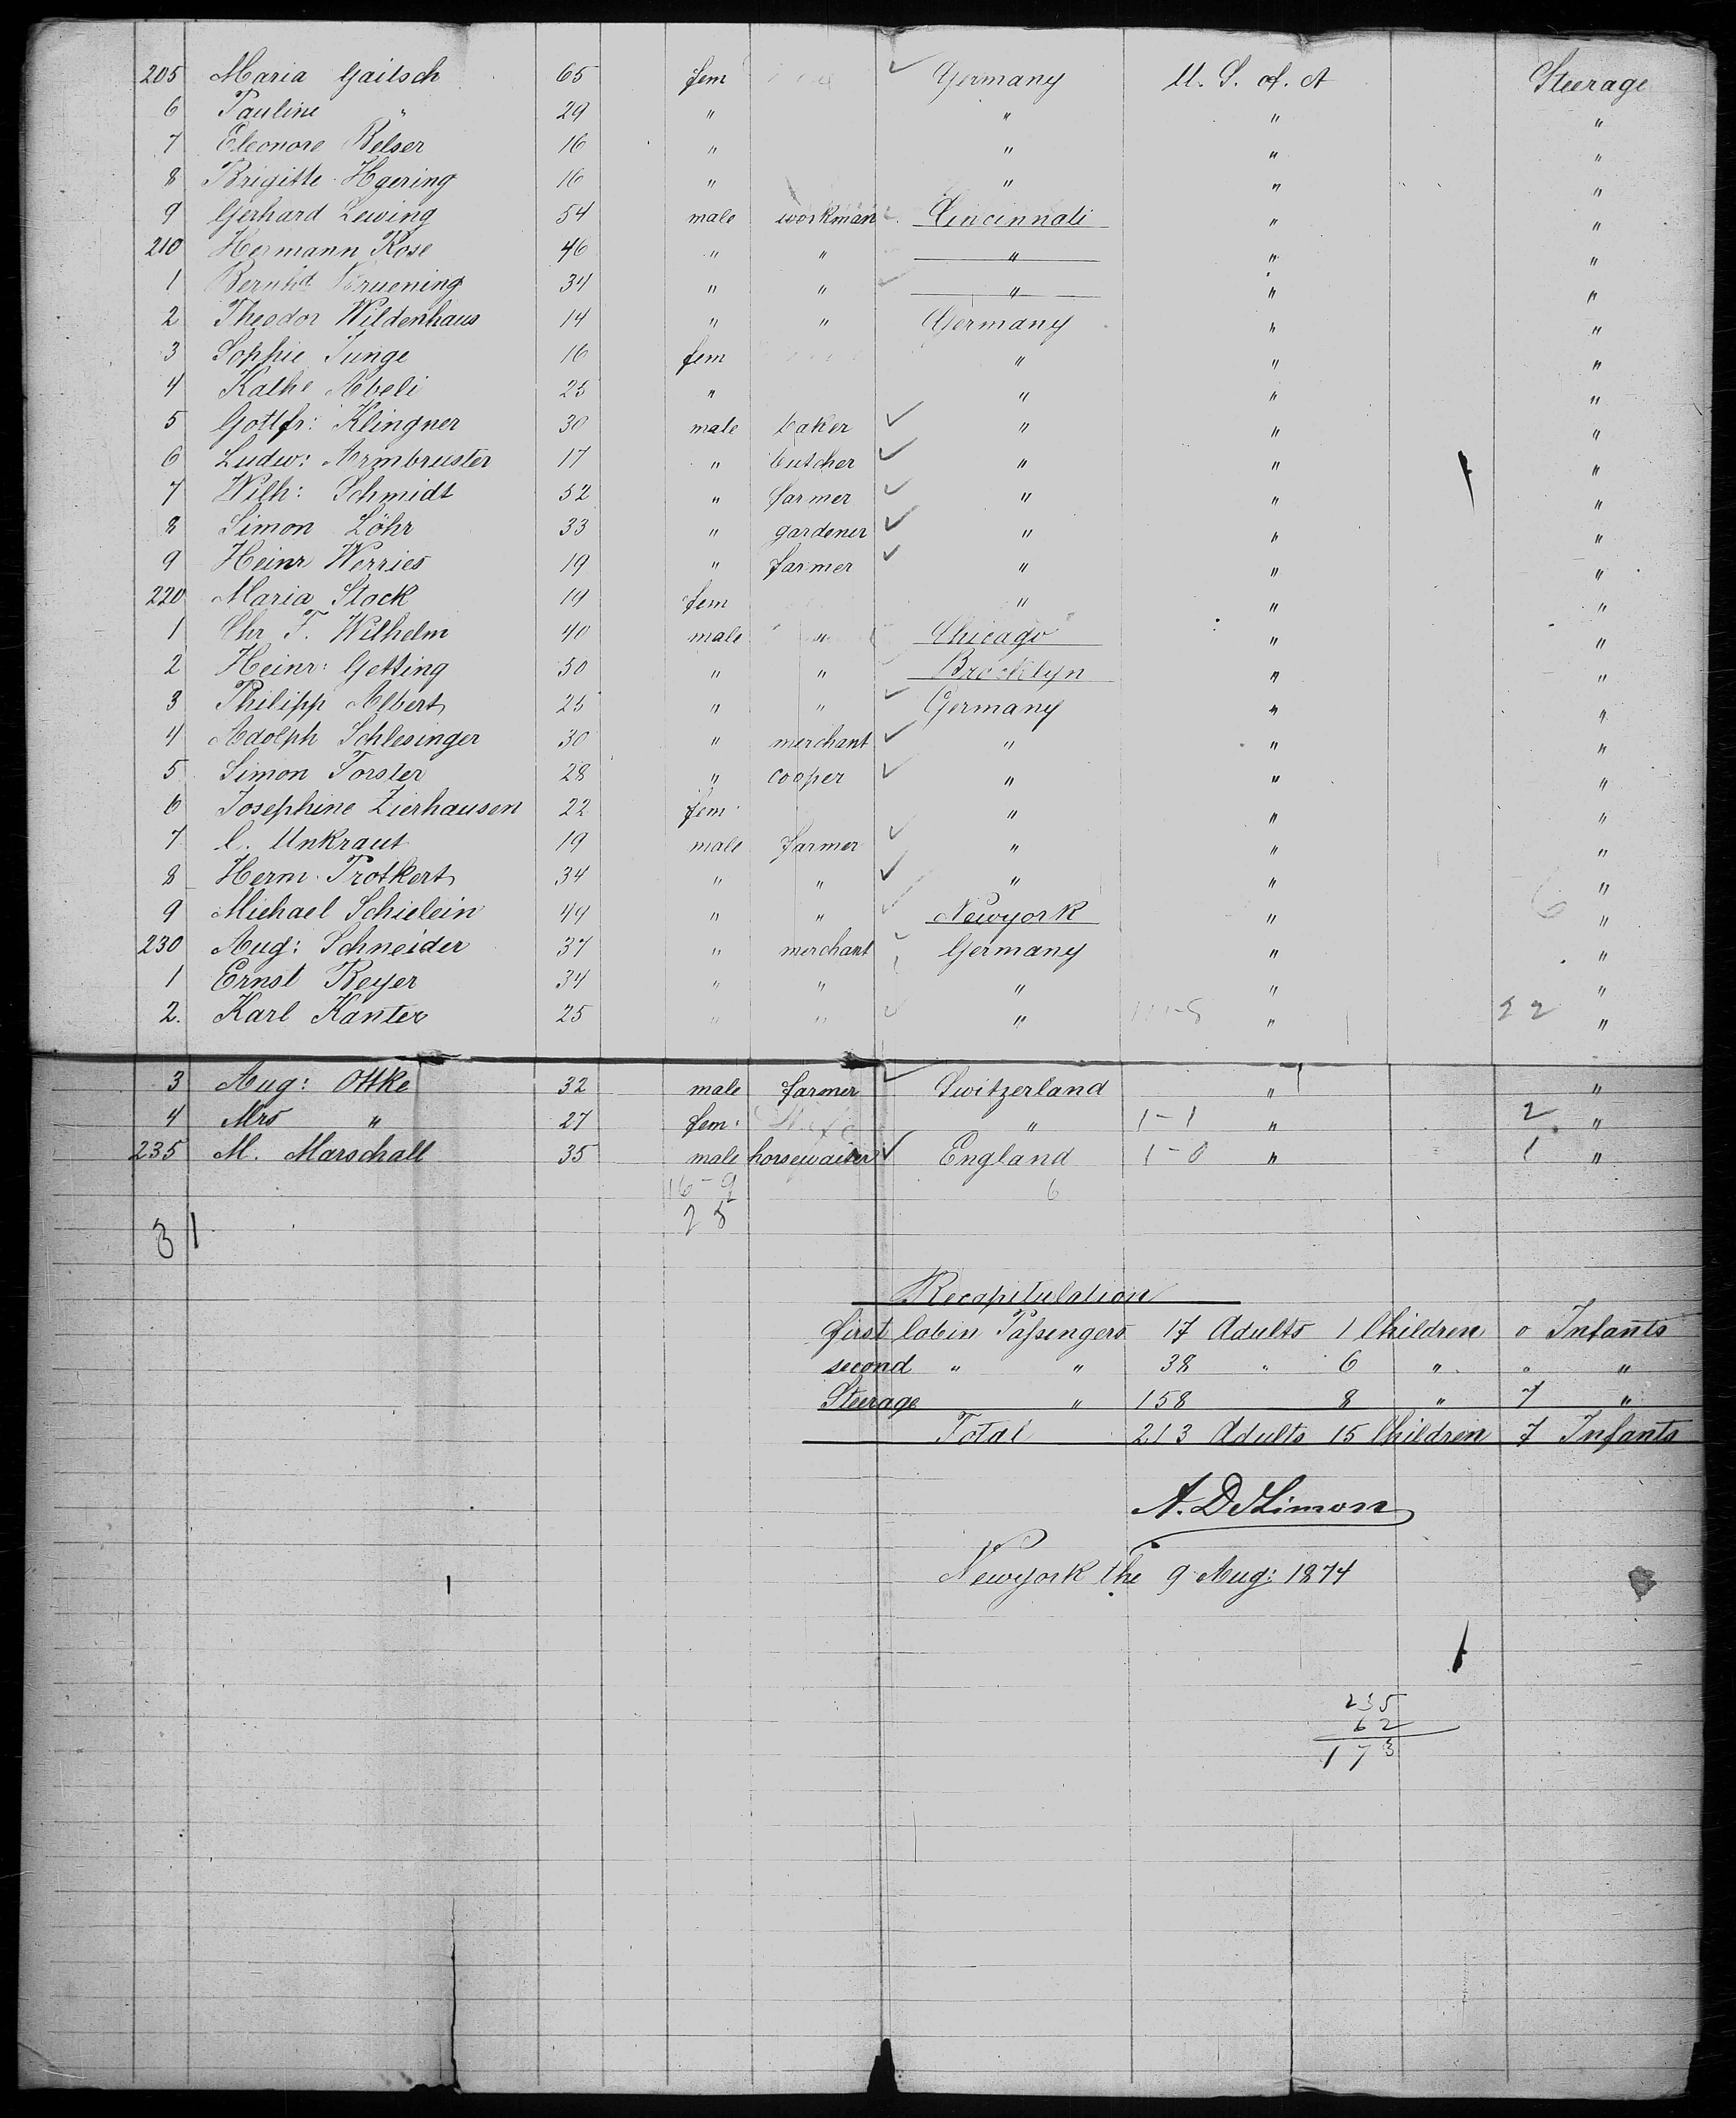 205 Maria Gaitsch 65 fem Germany U. S. of. A Steerage
6 Pauline " 29 " " " "
7 Eleonore Belser 16 " " " "
8 Brigitte Hgering 16 " " " "
9 Gerhard Lewing 54 male workman Cincinnati " "
210 Hermann Rose 46 " " " " "
1 Bernhd Bruening 34 " " " " "
2 Theodor Wildenhaus 14 " " Germany " "
3 Sophie Junge 16 fem " " "
4 Kathe Abeli 25 " " " "
5 Gottfr: Klingner 30 male baker " " "
6 Ludw: Armbruster 17 " butcher " " "
7 Wilh: Schmidt 52 " farmer " " "
8 Simon Löhr 33 " gardener " " "
9 Heinr Werries 19 " farmer " " "
220 Maria Stock 19 fem " " "
1 Chr F. Wilhelm 40 male " Chicago " "
2 Heinr: Getting 50 " " Brooklyn " "
3 Philipp Albert 25 " " Germany " "
4 Adolph Schlesinger 30 " merchant " " "
5 Simon Forster 28 " cooper " " "
6 Josephine Zierhausen 22 fem " " "
7 C. Unkraut 19 male farmer " " "
8 Herm Trotkert 34 " " " " "
9 Michael Schielein 44 " " Newyork " 6 "
230 Aug: Schneider 37 " merchant Germany " "
1 Ernst Beyer 34 " " " " "
2. Karl Kanter 25 " " " " 22 "
3 Aug: Ottke 32 male farmer Switzerland " "
4 Mrs " 27 fem: " 1-1 " 2 "
235 M. Marschall 35 male horsewaiter England 1-0 " 1 "
16-9 6
31 25
Recapitulation
first Cabin Passengers 17 Adults 1 Children 0 Infants
second " " 38 " 6 " 0 "
Steerage " 158 8 " 7 "
Total 213 Adults 15 Children 7 Infants
A. DeLimon
Newyork the 9 Aug: 1874
235
62
173